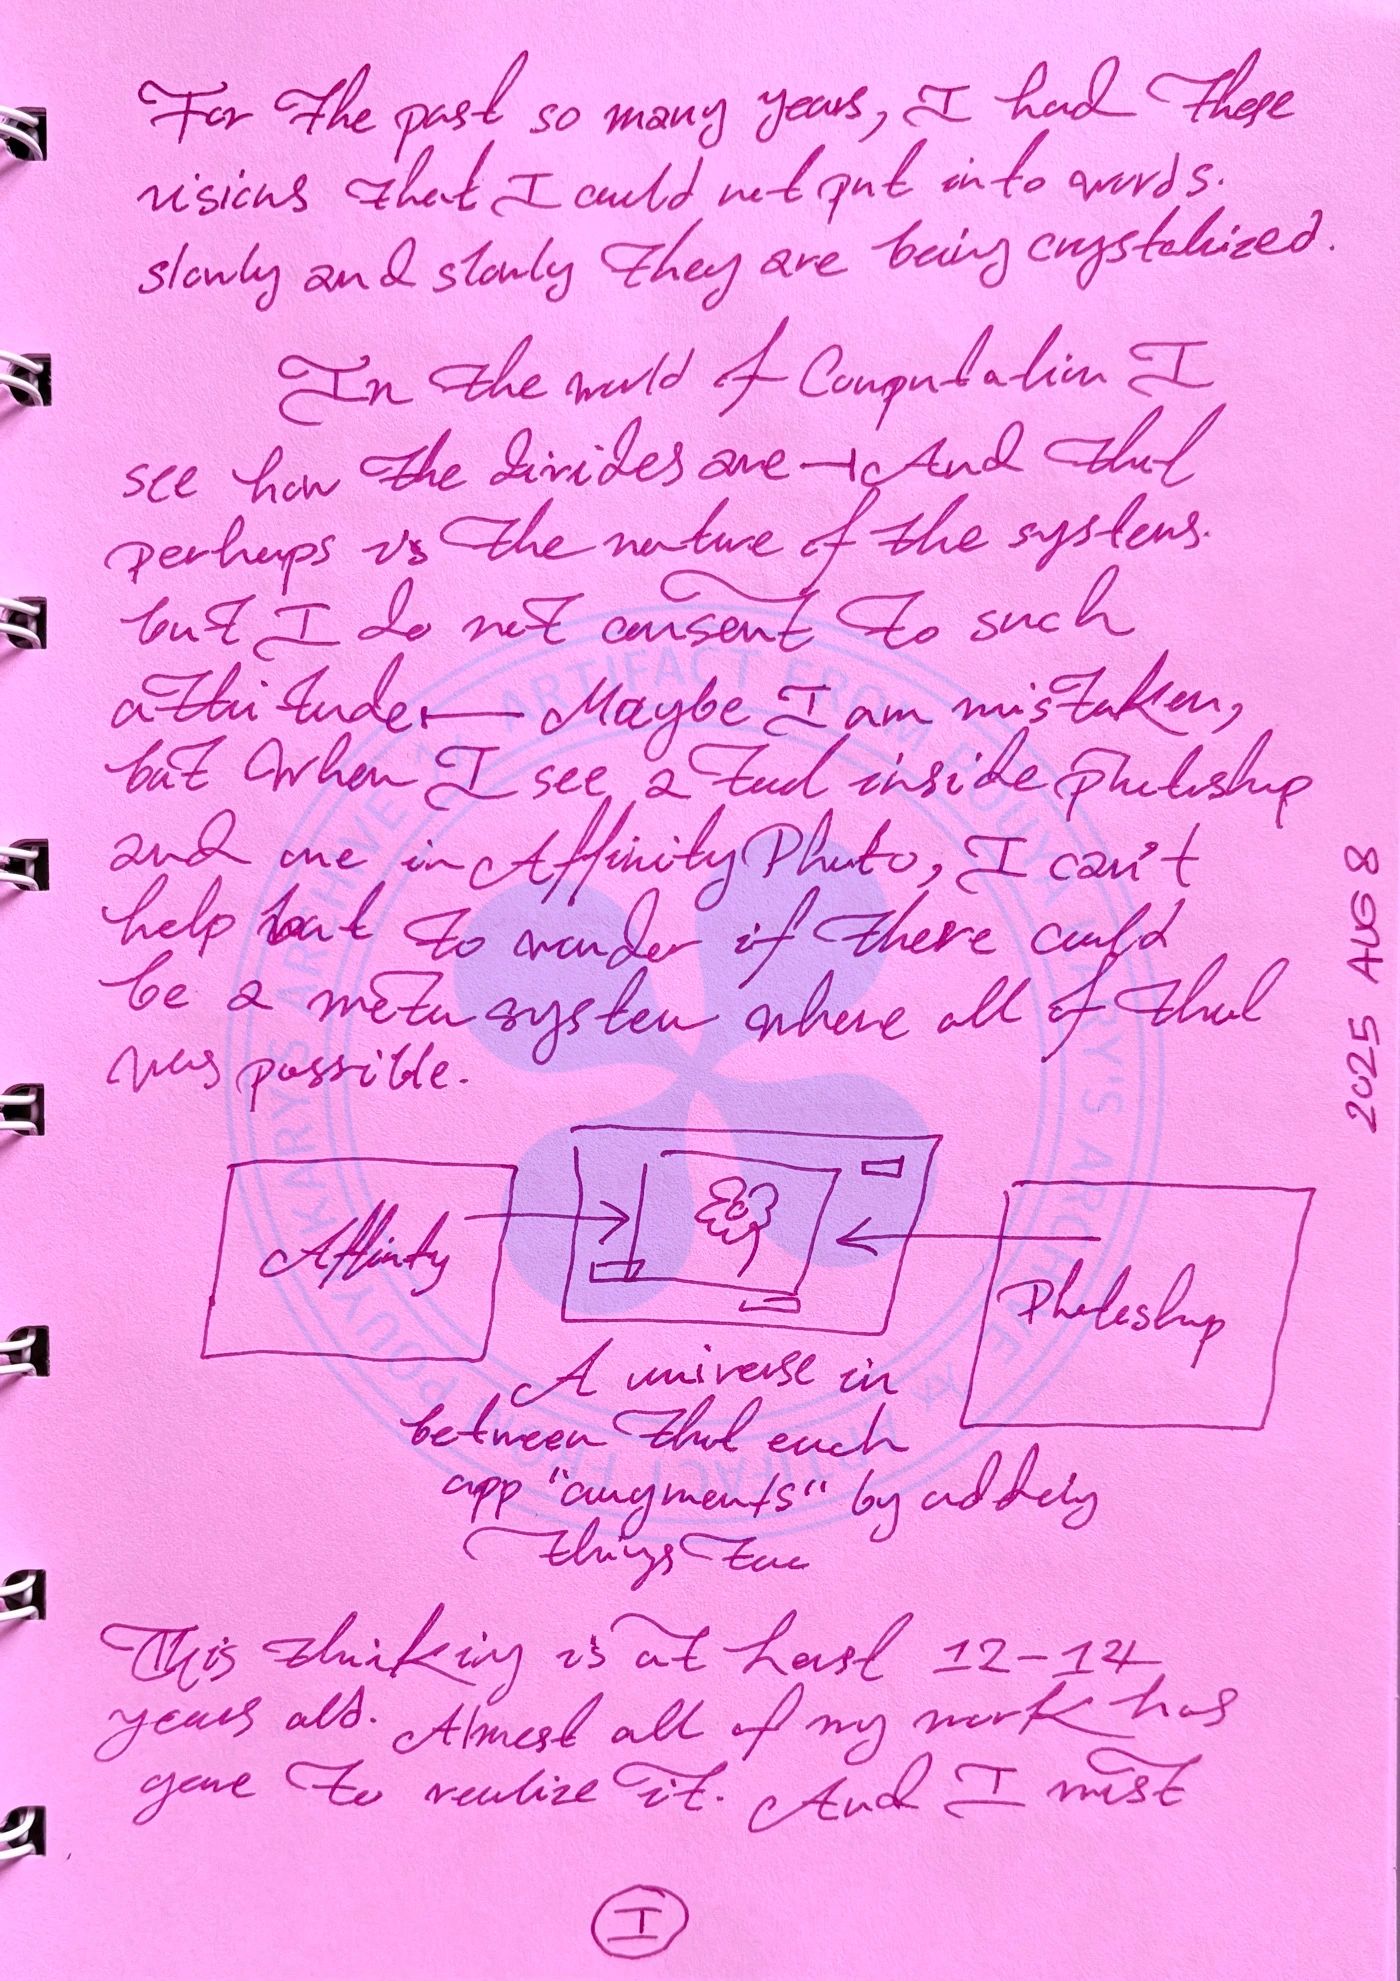 For the past so many years, I had these
visions that I could not put into words.
slowly and slowly they are being crystalized.
In the world of Computation I
see how the divides are — And that
perhaps is the nature of the systems.
but I do not consent to such
attitude — Maybe I am mistaken,
but when I see a tool inside photoshop
and one in Affinity Photo, I can't
help but to wonder if there could
be a meta system where all of that
was possible.
Affinity
Photoshop
A universe in
between that each
app "augments" by adding
things to
This thinking is at least 12-14
years old. Almost all of my work has
gone to realize it. And I must
I
2025 AUG 8
AN ARTIFACT FROM POUYA KARY'S ARCHIVE
AN ARTIFACT FROM POUYA KARY'S ARCHIVE